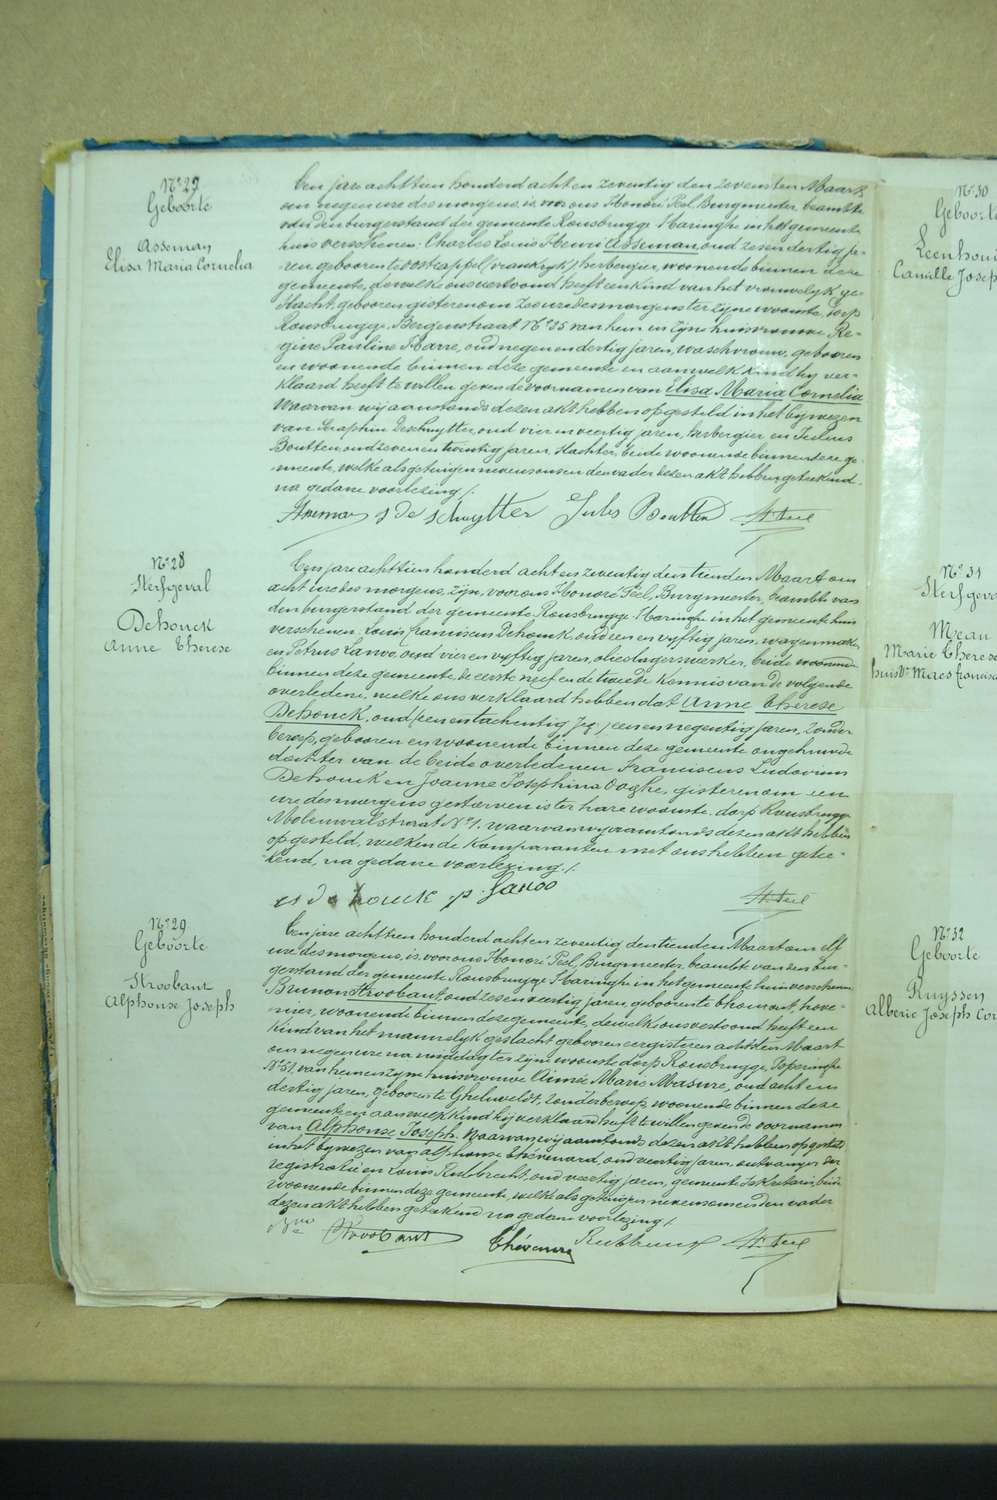 N° 27
Geboorte
Asseman
Elisa Maria Cornelia
Een jare achttien honderd acht en zeventig den zevensten Maart
ten negen ure des morgens, is voor ons Honoré Peel, Burgmeester, beambte
van den burgerstand der gemeente Rousbrugge-Haringhe in het gemeente
huis verschenen: Charles Louis Henri Asseman, oud zes en dertig ja-
ren geboren te Oostcappel (vrankryk) herbergier, woonende binnen deze
gemeente, dewelke ons vertoond heeft een kind van het vrouwelyk ge-
slacht, geboren gisteren om zes ure des morgens ter zyne woonste, dorp
Rousbrugge, Bergenstraat N° 25 van hem en zyne huisvrouwe Re-
gine Pauline Harre, oud negen en dertig jaren, waschvrouw, geboren
en woonende binnen deze gemeente en aan welk kind hy ver-
klaard heeft te willen geven de voornamen van Elisa Maria Cornelia
Waarvan wij aanstonds dezen akt hebben opgesteld in het bywezen
van Seraphin Deschuytter, oud vier en veertig jaren, herbergier en Julius
Boutten, oud zeven en twintig jaren, slachter, beide woonende binnen deze ge-
meente, welke als getuigen nevens ons en den vader dezen akt hebben geteekend
na gedane voorlezing /.
Asseman s de schuytter Jules Boutten H. Peel
N° 28
Sterfgeval
Dehouck
Anne Therese
Een jare achttien honderd acht en zeventig den tienden Maart om
acht ure des morgens, zijn, voor ons Honoré Peel, Burgmeester, beambte van
den burgerstand der gemeente Rousbrugge-Haringhe in het gemeente huis
verschenen: Louis franciscus Dehouck, oud een en vyftig jaren, wagenmaker
en Petrus Lanoo, oud vier en vyftig jaren, olieslagerswerker, beide woonende
binnen deze gemeente de eerste neef en de tweede kennis van de volgende
overledene, welke ons verklaard hebben dat Anne Therese
Dehouck, oud (een en tachentig jaren) een en negentig jaren, zonder
beroep, geboren en woonende binnen deze gemeente ongehuwde
dochter van de beide overledenen Franciscus Ludovicus
Dehouck en Joanne Josephina Ooghe, gisteren om een
ure des morgens gestorven is ter hare woonste, dorp Rousbrugge
Molenwalstraat N° 1, waarvan wy aanstonds dezen akt hebben
opgesteld, welken de komparanten met ons hebben getee-
kend, na gedane voorlezing /.
de houck p. Lanoo H. Peel
N° 29
Geboorte
Stroobant
Alphonse Joseph
Een jare achttien honderd acht en zeventig den tienden Maart om elf
ure des morgens, is voor ons Honoré Peel, Burgmeester, beambte van den bur-
gerstand der gemeente Rousbrugge-Haringhe in het gemeente huis verschenen
Brunon Stroobant, oud zes en veertig jaren, geboren te Thourout, hove-
nier, woonende binnen deze gemeente, dewelke ons vertoond heeft een
kind van het mannelyk geslacht geboren eergisteren achtsten Maart
om negen ure namiddag ter zijne woonst dorp Rousbrugge, Poperinghe
N° 51, van hem en zyne huisvrouwe Aimée Marie Masure, oud acht en
dertig jaren, geboren te Gheluveldt, zonder beroep, woonende binnen deze
gemeente en aan welk kind hy verklaard heeft te willen geven de voornamen
van Alphonse Joseph. Waarvan wy aanstonds dezen akt hebben opgesteld
in het bywezen van alphonse Thévenard, oud veertig jaren, ontvanger der
registratie en Louis Rubbrecht, oud veertig jaren, gemeente sekretaris, beide
woonende binnen deze gemeente, welke als getuigen nevens ons en den vader
dezen akt hebben geteekend na gedane voorlezing /.
Stroobant Thévenard Rubbrecht H. Peel
N° 30
Geboorte
Leenhou
Camille Josep
N° 31
Sterfgeva
Mean
Marie Therese
huisve Maes francisc
N° 32
Geboorte
Ruyssen
Alberic Joseph Cor